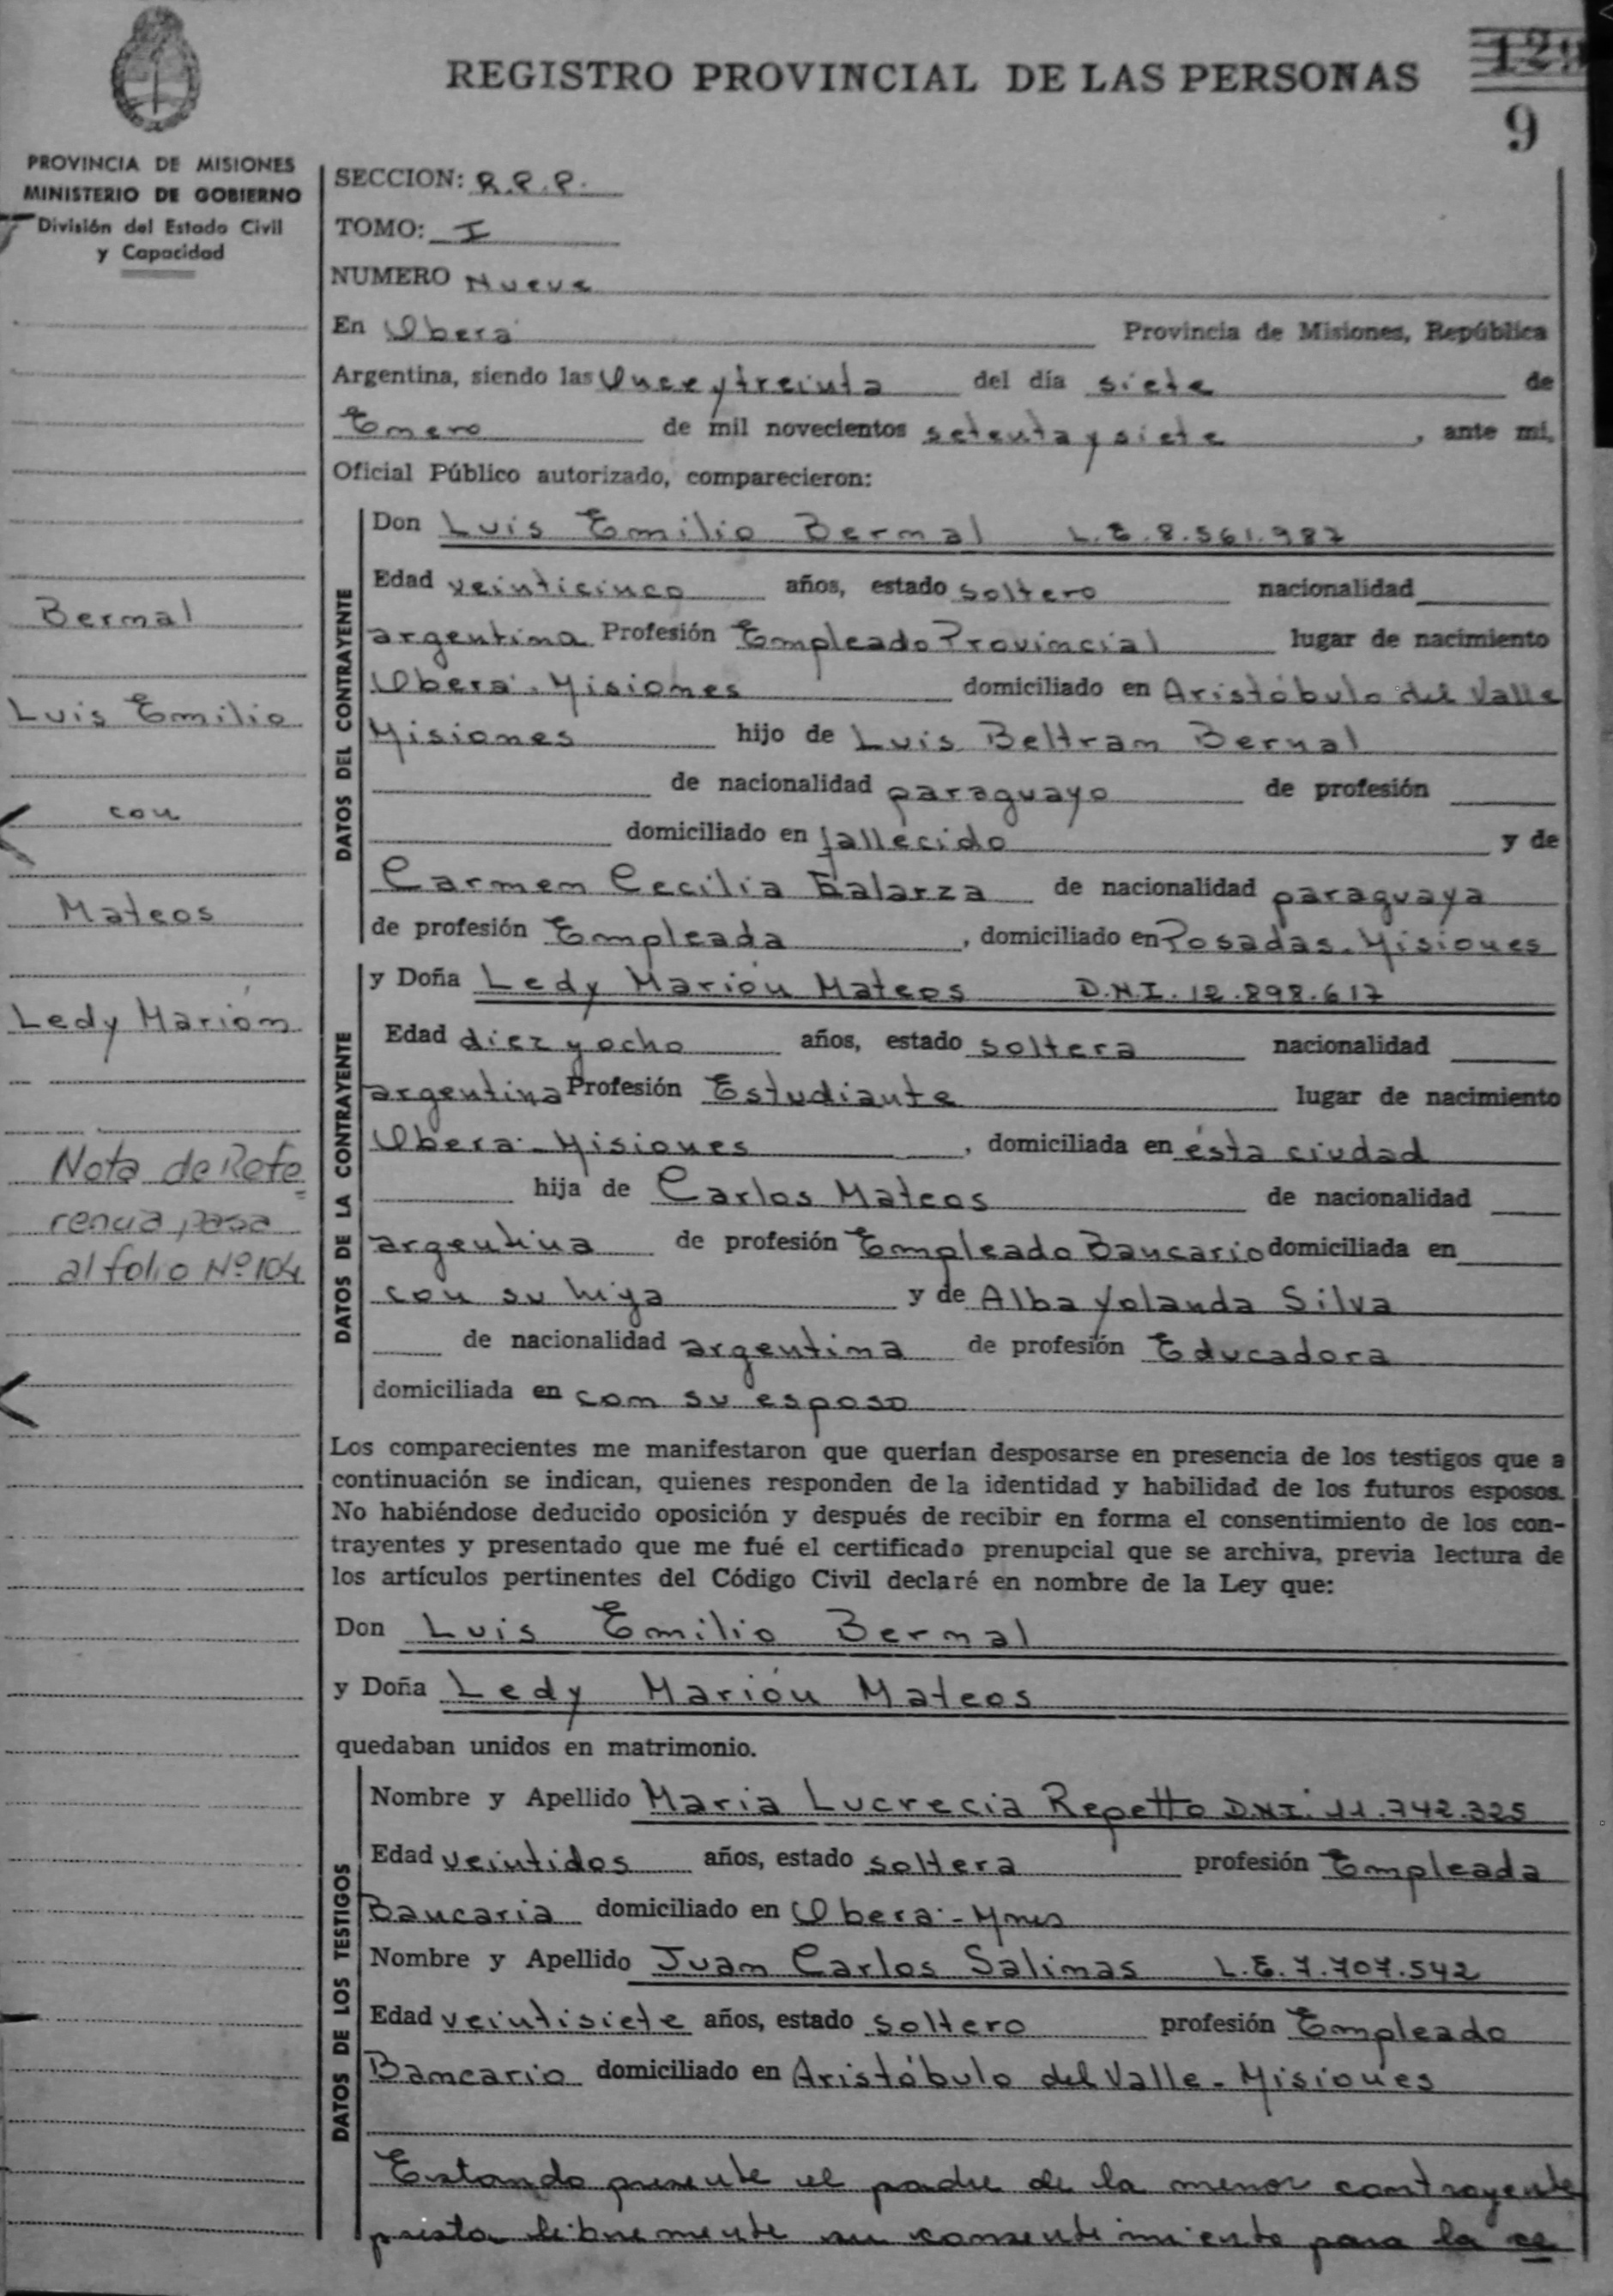 REGISTRO PROVINCIAL DE LAS PERSONAS
9
PROVINCIA DE MISIONES
MINISTERIO DE GOBIERNO
División del Estado Civil
y Capacidad
Bernal
Luis Emilio
con
Mateos
Ledy Marión
Nota de Refe
rencia pasa
al folio Nº 104
SECCION: R.P.P.
TOMO: I
NUMERO Nueve
En Oberá Provincia de Misiones, República
Argentina, siendo las Once y treinta del día siete de
Enero de mil novecientos setenta y siete, ante mi,
Oficial Público autorizado, comparecieron:
DATOS DEL CONTRAYENTE
Don Luis Emilio Bernal L.E. 8.561.987
Edad veinticinco años, estado soltero nacionalidad
argentina Profesión Empleado Provincial lugar de nacimiento
Oberá - Misiones domiciliado en Aristóbulo del Valle
Misiones hijo de Luis Beltram Bernal
de nacionalidad paraguayo de profesión
domiciliado en fallecido y de
Carmen Cecilia Galarza de nacionalidad paraguaya
de profesión Empleada, domiciliado en Posadas - Misiones
DATOS DE LA CONTRAYENTE
y Doña Ledy Marión Mateos D.N.I. 12.898.617
Edad diez y ocho años, estado soltera nacionalidad
argentina Profesión Estudiante lugar de nacimiento
Oberá - Misiones, domiciliada en ésta ciudad
hija de Carlos Mateos de nacionalidad
argentina de profesión Empleado Bancario domiciliada en
con su hija y de Alba Yolanda Silva
de nacionalidad argentina de profesión Educadora
domiciliada en con su esposo
Los comparecientes me manifestaron que querían desposarse en presencia de los testigos que a
continuación se indican, quienes responden de la identidad y habilidad de los futuros esposos.
No habiéndose deducido oposición y después de recibir en forma el consentimiento de los con-
trayentes y presentado que me fué el certificado prenupcial que se archiva, previa lectura de
los artículos pertinentes del Código Civil declaré en nombre de la Ley que:
Don Luis Emilio Bernal
y Doña Ledy Marión Mateos
quedaban unidos en matrimonio.
DATOS DE LOS TESTIGOS
Nombre y Apellido Maria Lucrecia Repetto D.N.I. 11.742.325
Edad veintidos años, estado soltera profesión Empleada
Bancaria domiciliado en Oberá - Mnes
Nombre y Apellido Juan Carlos Salinas L.E. 7.707.542
Edad veintisiete años, estado soltero profesión Empleado
Bancario domiciliado en Aristóbulo del Valle - Misiones
Estando presente el padre de la menor contrayente
presta libremente su consentimiento para la ce